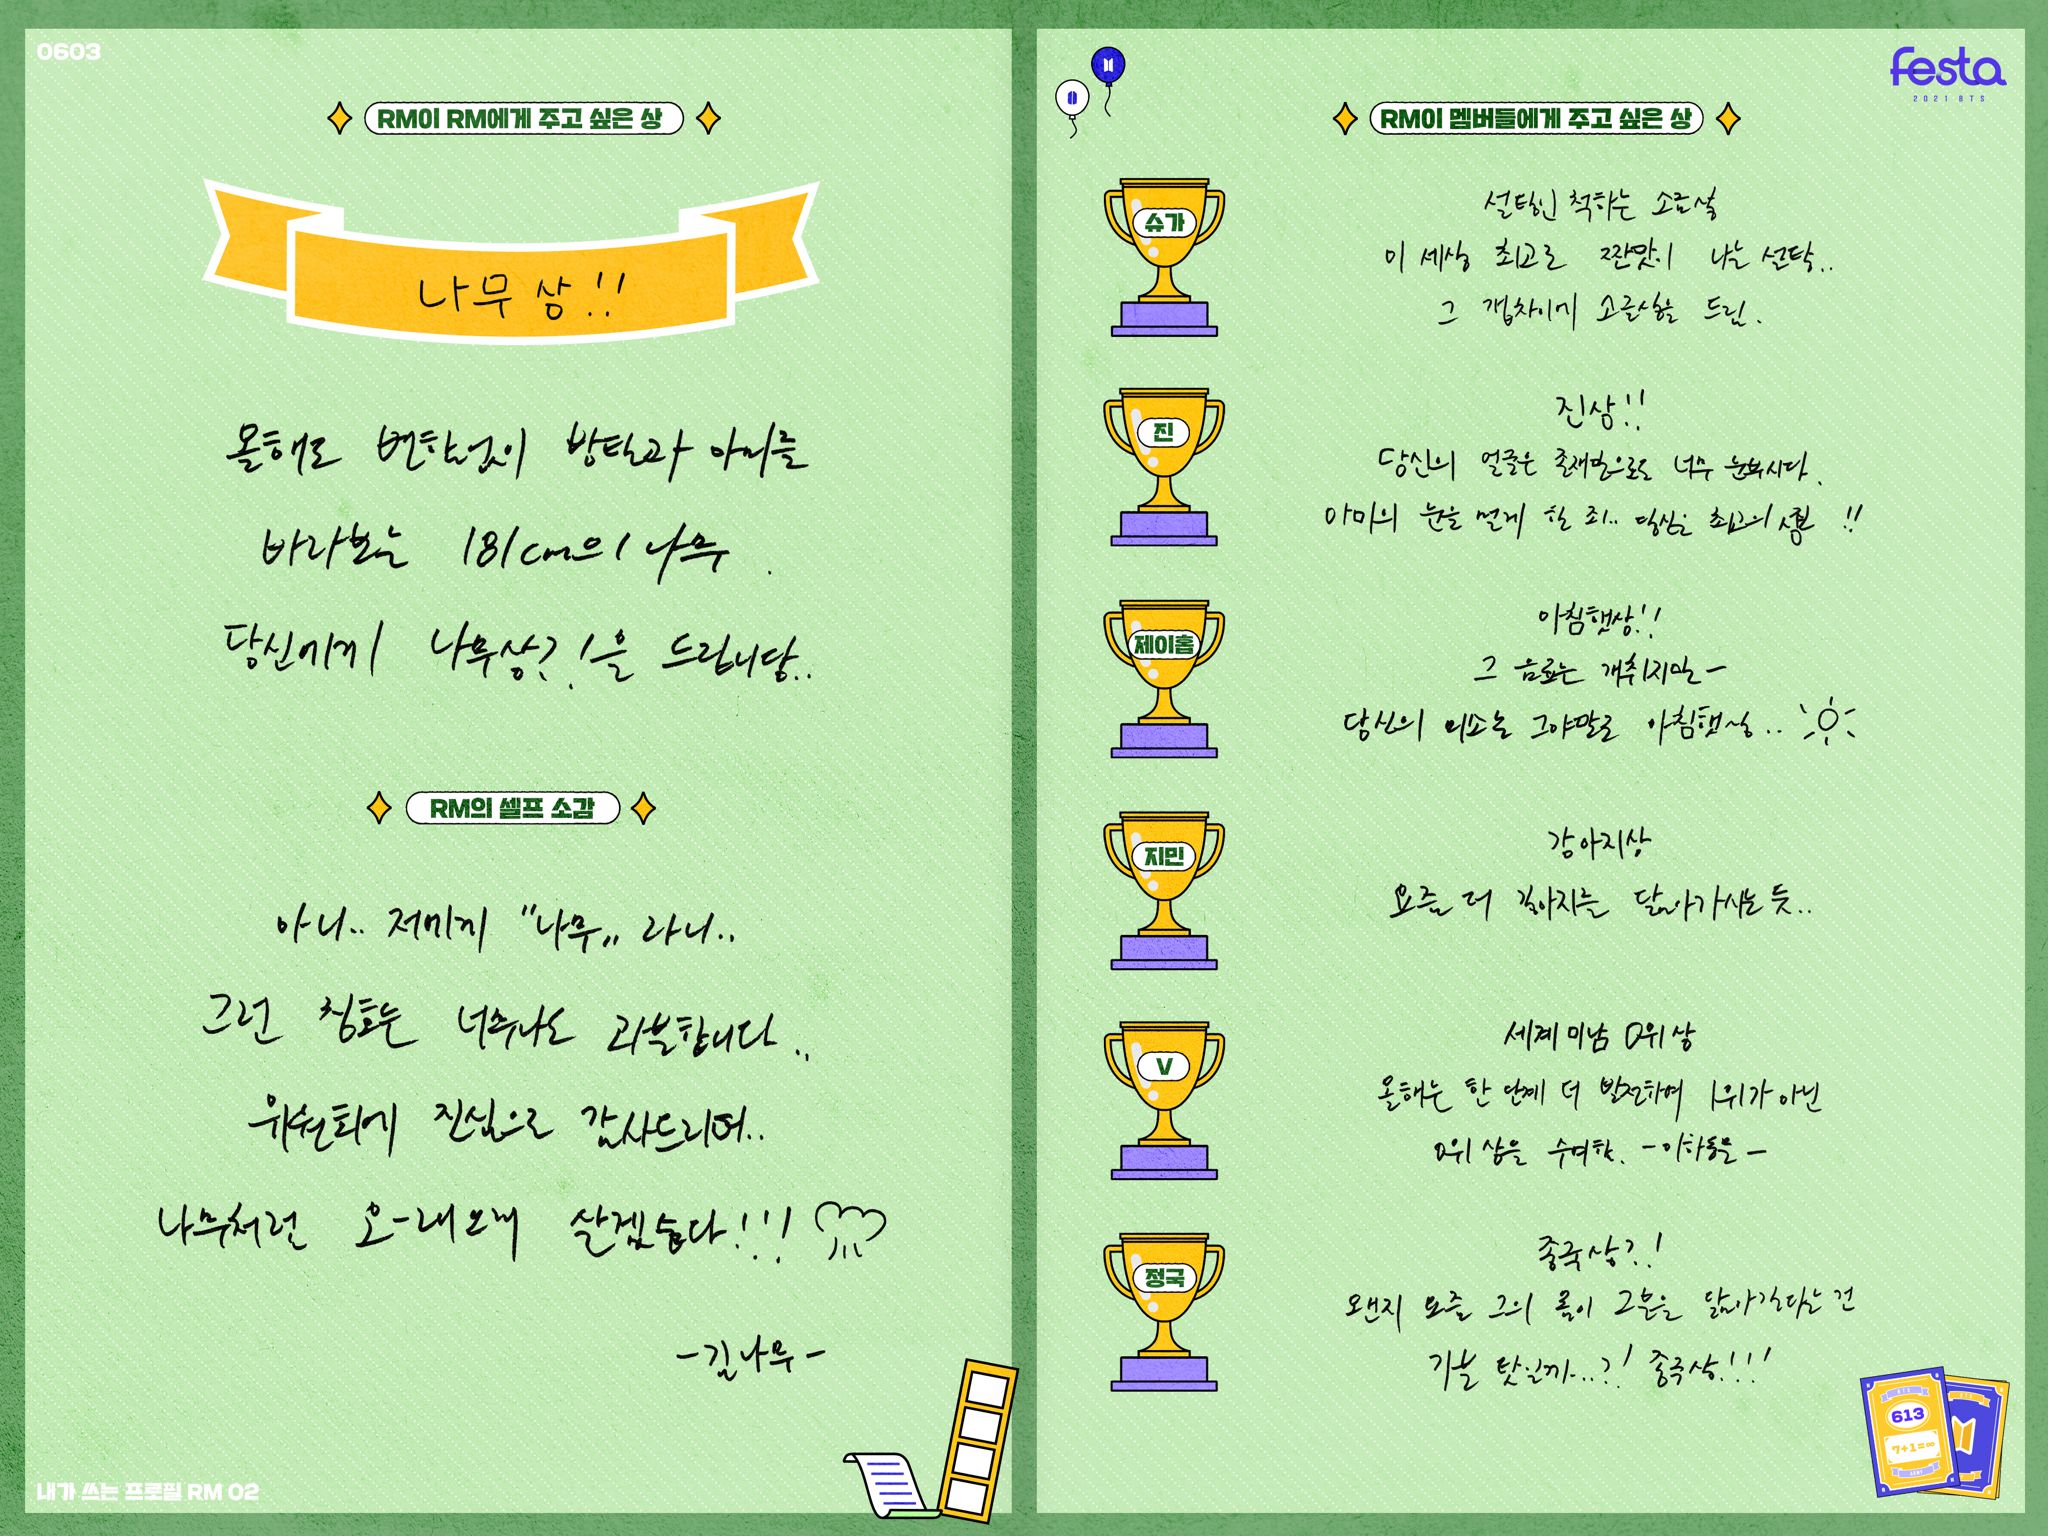 0603
RM이 RM에게 주고 싶은 상
나무상!!
올해도 변함없이 방탄과 아미를
바라보는 181cm의 나무.
당신에게 나무상?!을 드립니당..
RM의 셀프 소감
아니.. 저에게 "나무" 라니..
그런 칭호는 너무나도 과분합니다..
위원회에 진심으로 감사드리며..
나무처럼 오-래오래 살겠습니다!!!
-김나무-
내가 쓰는 프로필 RM 02
festa
2021 BTS
RM이 멤버들에게 주고 싶은 상
슈가
설탕인 척하는 소금상
이 세상 최고로 짠맛이 나는 설탕..
그 갭차이에 소금상을 드림.
진
진상!!
당신의 얼굴은 존재만으로도 너무 눈부시다.
아미의 눈을 멀게 한 죄.. 당신은 최고의 !!
제이홉
아침햇상!!
그 음료는 개취지만-
당신의 미소는 그야말로 아침햇살..
지민
강아지상
요즘 더 강아지를 닮아가시는 듯..
V
세계 미남 0위 상
올해는 한 단계 더 발전하여 1위가 아닌
0위 상을 수여함. -이하동문-
정국
종국상?!
왠지 요즘 그의 몸이 그분을 닮아간다는 건
기분 탓일까...?! 종국상!!!
613
7+1=∞